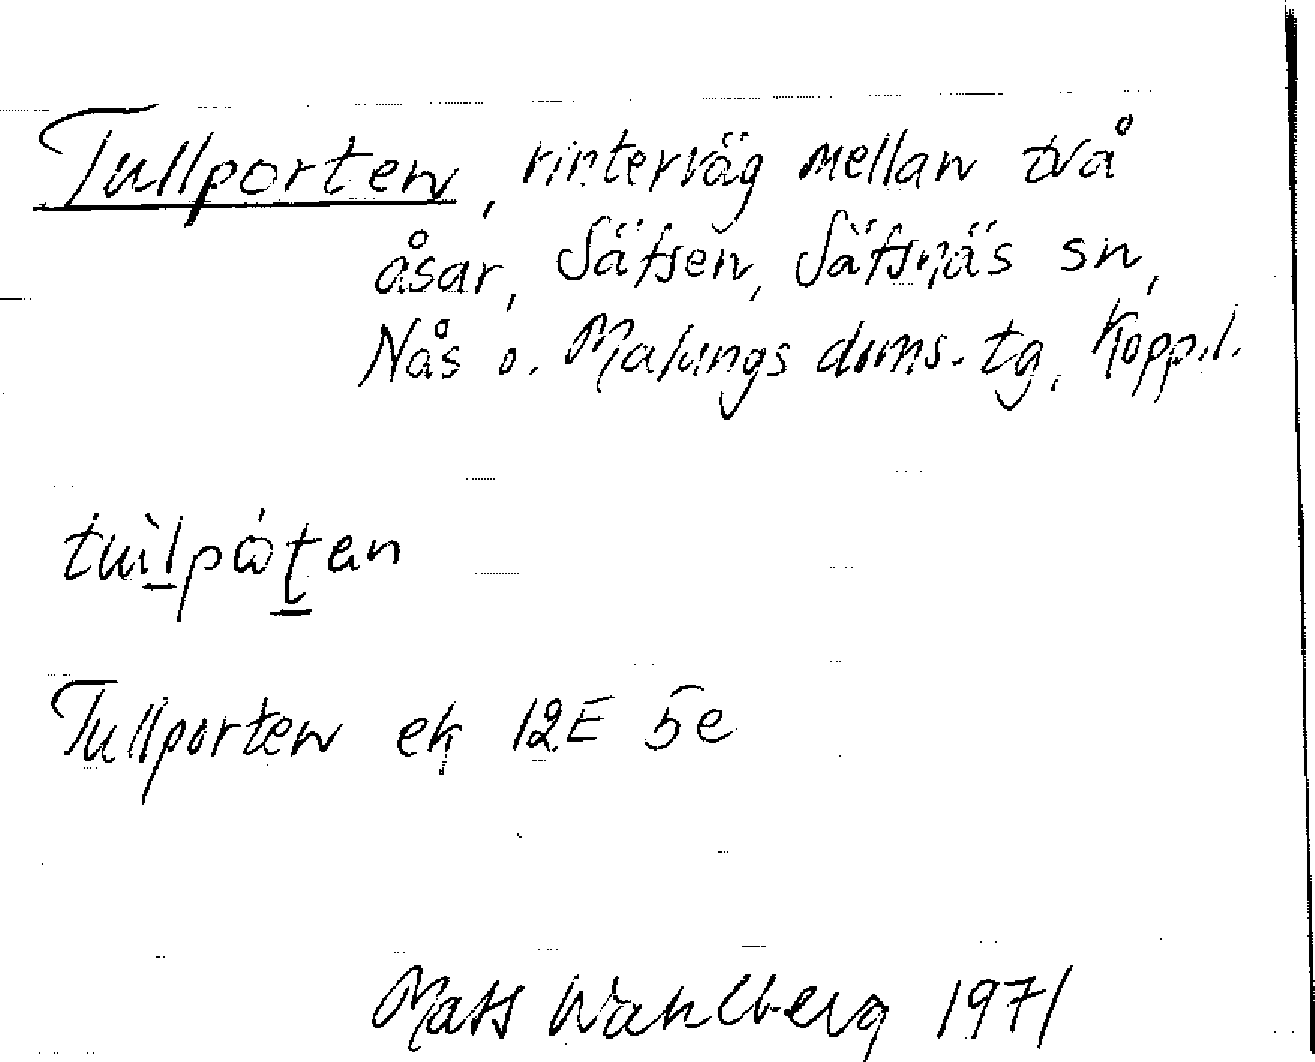 Tullporten, vinterväg mellan två
åsar, Säfsen, Säfsnäs sn,
Nås o. Malungs doms. tg, Kopp.l.
Tullporten ek 12E 5e
Mats Wahlberg 1971